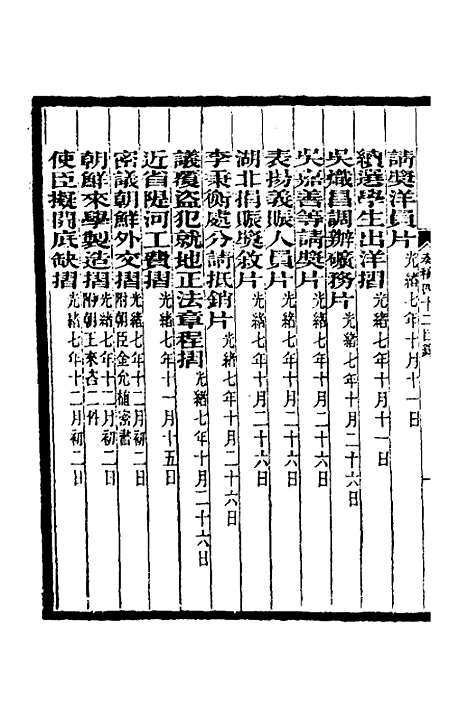 奏稿四十二目錄 一
請獎洋員片 光緒七年十月十一日
納選學生出洋摺 光緒七年十月十一日
吳熾昌調辦礦務片 光緒七年十月二十六日
吳嘉善等請獎片 光緒七年十月二十六日
表揚義賑人員片 光緒七年十月二十六日
湖北捐賑獎敘片 光緒七年十月二十六日
李秉衡處分請抵銷片 光緒七年十月二十六日
議覆盜犯就地正法章程摺 光緒七年十月二十六日
近省隄河工費摺 光緒七年十一月十五日
密議朝鮮外交摺 光緒七年十二月初二日 附朝臣金允植密書
朝鮮來學製造摺 光緒七年十二月初二日 附朝王來咨二件
使臣擬開底缺摺 光緒七年十二月初二日